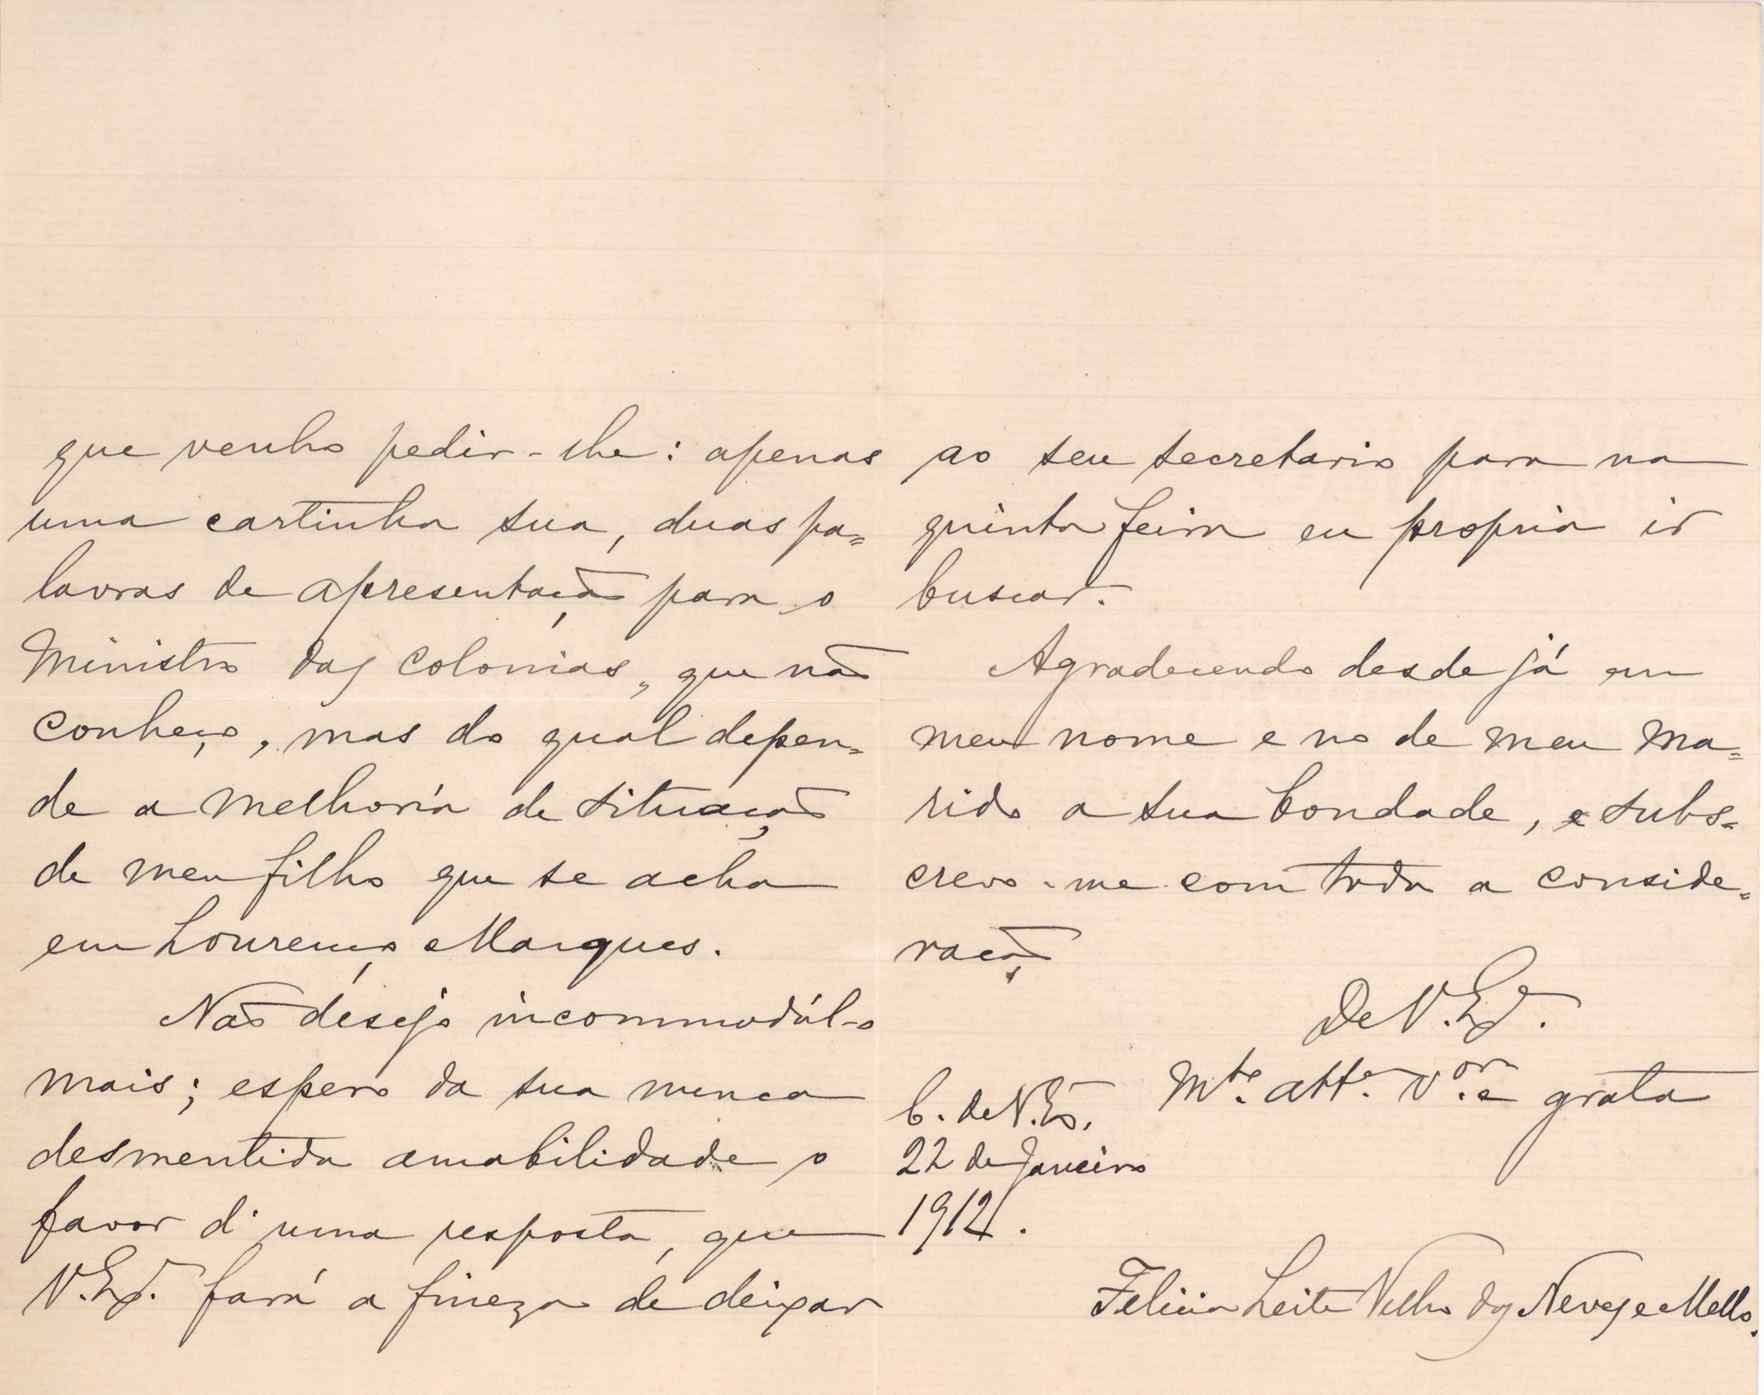 que venho pedir-lhe: apenas
uma cartinha sua, duas pa=
lavras de apresentação para o
Ministro das Colonias, que não
conheço, mas do qual depen=
de a melhoria de situação
de meu filho que se acha
em Lourenço Marques.
Não desejo incommodál-o
mais; espero da sua nunca
desmentida amabilidade o
favor d'uma resposta, que
V. Ex.ª fará a fineza de deixar
ao seu secretario para na
quinta feira eu propria ir
buscar.
Agradecendo desde já em
meu nome e no de meu ma=
rido a sua bondade, e subs=
crevo-me com toda a conside=
ração
De V. Ex.ª
M.to att.ª V.or e grata
C. de V. Ex.ª
22 de Janeiro
1912.
Felicia Leite Velho das Neves e Mello.